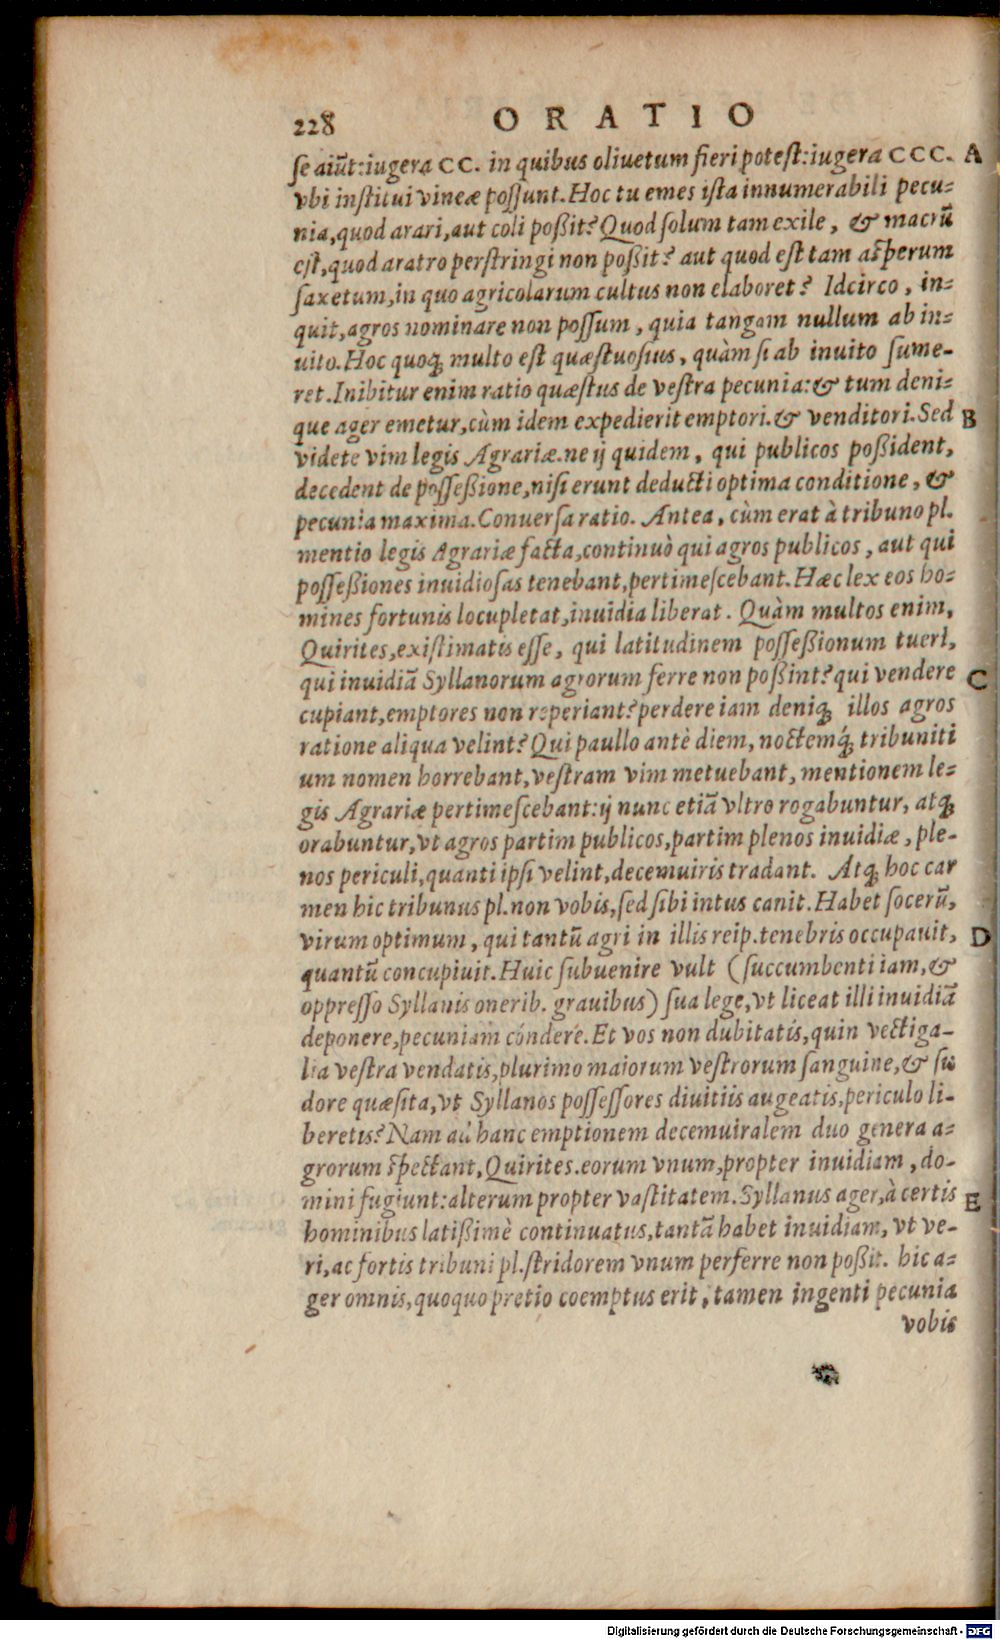 228 ORATIO
se aiũt:iugera CC. in quibus oliuetum fieri potest:iugera CCC. A
vbi institui vineæ possunt. Hoc tu emes ista innumerabili pecu-
nia,quod arari,aut coli poßit? Quod solum tam exile, & macrũ
est,quod aratro perstringi non poßit? aut quod est tam asperum
saxetum,in quo agricolarum cultus non elaboret? Idcirco, in-
quit,agros nominare non possum, quia tangam nullum ab in-
uito. Hoc quoq; multo est quæstuosius, quàm si ab inuito sume-
ret. Inibitur enim ratio quæstus de vestra pecunia:& tum deni-
que ager emetur,cùm idem expedierit emptori.& venditori. Sed B
videte vim legis Agrariæ.ne ij quidem, qui publicos poßident,
decedent de posseßione,nisi erunt deducti optima conditione, &
pecunia maxima. Conuersa ratio. Antea, cùm erat à tribuno pl.
mentio legis Agrariæ facta,continuò qui agros publicos, aut qui
posseßiones inuidiosas tenebant,pertimescebant. Hæc lex eos ho-
mines fortunis locupletat,inuidia liberat. Quàm multos enim,
Quirites,existimatis esse, qui latitudinem posseßionum tueri,
qui inuidiã Syllanorum agrorum ferre non poßint? qui vendere C
cupiant,emptores non reperiant? perdere iam deniq; illos agros
ratione aliqua velint? Qui paullo antè diem, noctemq́; tribuniti
um nomen horrebant,vestram vim metuebant, mentionem le-
gis Agrariæ pertimescebant:ij nunc etiã vltro rogabuntur, atq;
orabuntur,vt agros partim publicos,partim plenos inuidiæ, ple-
nos periculi,quanti ipsi velint,decemuiris tradant. Atq; hoc car
men hic tribunus pl. non vobis,sed sibi intus canit. Habet socerũ,
virum optimum, qui tantũ agri in illis reip. tenebris occupauit, D
quantũ concupiuit. Huic subuenire vult (succumbenti iam,&
oppresso Syllanis onerib. grauibus) sua lege,vt liceat illi inuidiã
deponere,pecuniam cóndere. Et vos non dubitatis,quin vectiga-
lia vestra vendatis,plurimo maiorum vestrorum sanguine,& su
dore quæsita,vt Syllanos possessores diuitiis augeatis,periculo li-
beretis? Nam ad hanc emptionem decemuiralem duo genera a-
grorum spectant,Quirites.eorum vnum,propter inuidiam, do-
mini fugiunt:alterum propter vastitatem. Syllanus ager,à certis E
hominibus latißimè continuatus,tantã habet inuidiam, vt ve-
ri,ac fortis tribuni pl. stridorem vnum perferre non poßit. hic a-
ger omnis,quoquo pretio coemptus erit, tamen ingenti pecunia
vobis
Digitalisierung gefördert durch die Deutsche Forschungsgemeinschaft - DFG